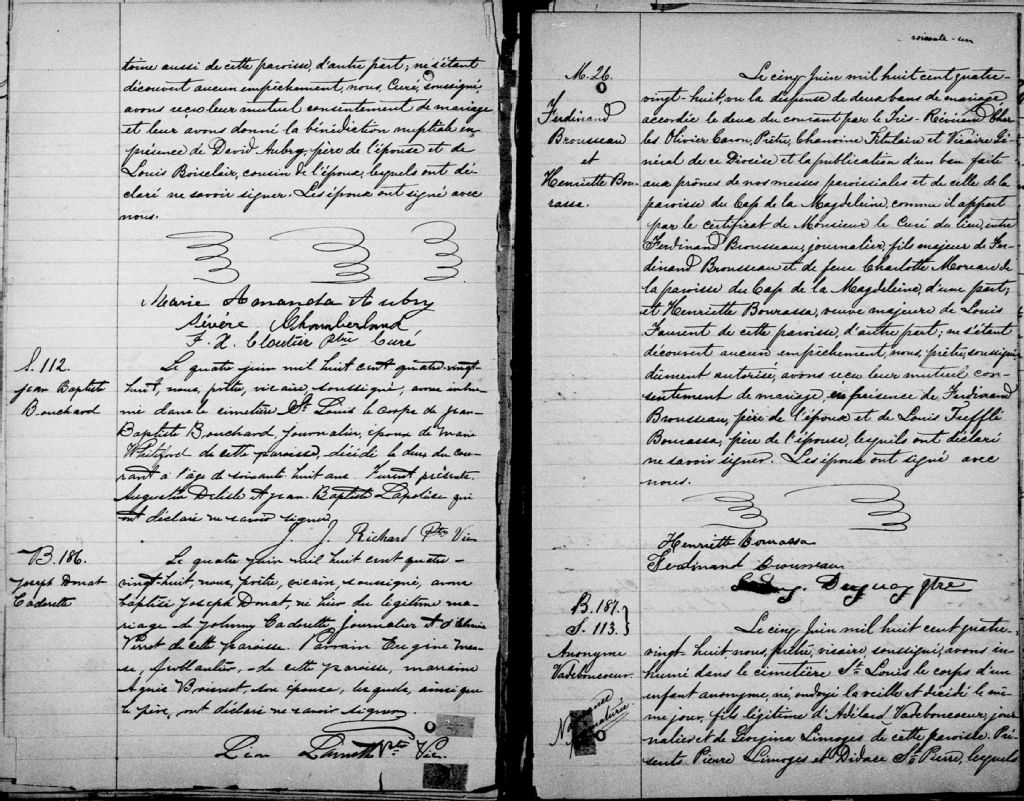 toine aussi de cette paroisse, d'autre part; ne s'étant
découvert aucun empêchement, nous, Curé, soussigné,
avons reçu leur mutuel consentement de mariage
et leur avons donné la bénédiction nuptiale en
présence de David Aubry, père de l'épouse et de
Louis Boisclair, cousin de l'époux, lesquels ont dé-
claré ne savoir signer. Les époux ont signé avec
nous.
Marie Amanda Aubry
Sévère Chamberland
F. X. Cloutier Ptre Curé
S. 112.
Jean Baptiste
Bouchard
Le quatre juin mil huit cent quatre vingt-
huit, nous, prêtre, vicaire, soussigné, avons inhu-
mé dans le cimetière St Louis le corps de Jean-
Baptiste Bouchard, journalier, époux de Marie
Whiteford de cette paroisse, décédé le deux du cou-
rant à l'âge de soixante huit ans. Furent présents
Augustin Delisle et Jean Baptiste Lapolise qui
ont déclaré ne savoir signer
J. J. Richard Ptre Vic
B. 186.
Joseph Donat
Cadorette
Le quatre juin mil huit cent quatre-
vingt-huit, nous, prêtre, vicaire soussigné, avons
baptisé Joseph Donat, né hier du légitime ma-
riage de Johnny Cadorette journalier et d'
de cette paroisse. Parrain
ferblantier, de cette paroisse, marraine
Agnès Boisvert, son épouse, lesquels, ainsi que
le père, ont déclaré ne savoir signer
Léon Lamothe Ptre Vic.
soixante-un
M. 26.
Ferdinand
Brousseau
et
Henriette Bou-
rassa.
Le cinq Juin mil huit cent quatre-
vingt-huit, vu la dispense de deux bans de mariage
accordée le deux du courant par le Très-Révérend Char-
les Olivier Caron, Prêtre, Chanoine Titulaire et Vicaire Gé-
néral de ce Diocèse et la publication d'un ban faite
aux prônes de nos messes paroissiales et de celle de la
paroisse du Cap de la Magdeleine, comme il appert
par le certificat de Monsieur le Curé du lieu, entre
Ferdinand Brousseau, journalier, fils majeur de Fer-
dinand Brousseau et de feue Charlotte Moreau de
la paroisse du Cap de la Magdeleine, d'une part;
et Henriette Bourassa, veuve majeure de Louis
Laurent de cette paroisse, d'autre part; ne s'étant
découvert aucun empêchement, nous, prêtre, soussigné
dûement autorisé, avons reçu leur mutuel con-
sentement de mariage, en présence de Ferdinand
Brousseau, père de l'époux et de Louis Trefflé
Bourassa, père de l'épouse, lesquels ont déclaré
ne savoir signer. Les époux ont signé avec
nous.
Henriette Bourassa
Ferdinand Brousseau
Duguay Ptre
B. 187.
S. 113.
Anonyme
Vadeboncoeur
Le cinq Juin mil huit cent quatre-
vingt-huit, nous, prêtre, vicaire, soussigné, avons in-
humé dans le cimetière St Louis le corps d'un
enfant anonyme, né, ondoyé la veille et décédé le mê-
me jour, fils légitime d'Adélard Vadeboncoeur, jour-
nalier, et de Georgina Limoges de cette paroisse. Pré-
sents Pierre Limoges et Didace St Pierre, lesquels